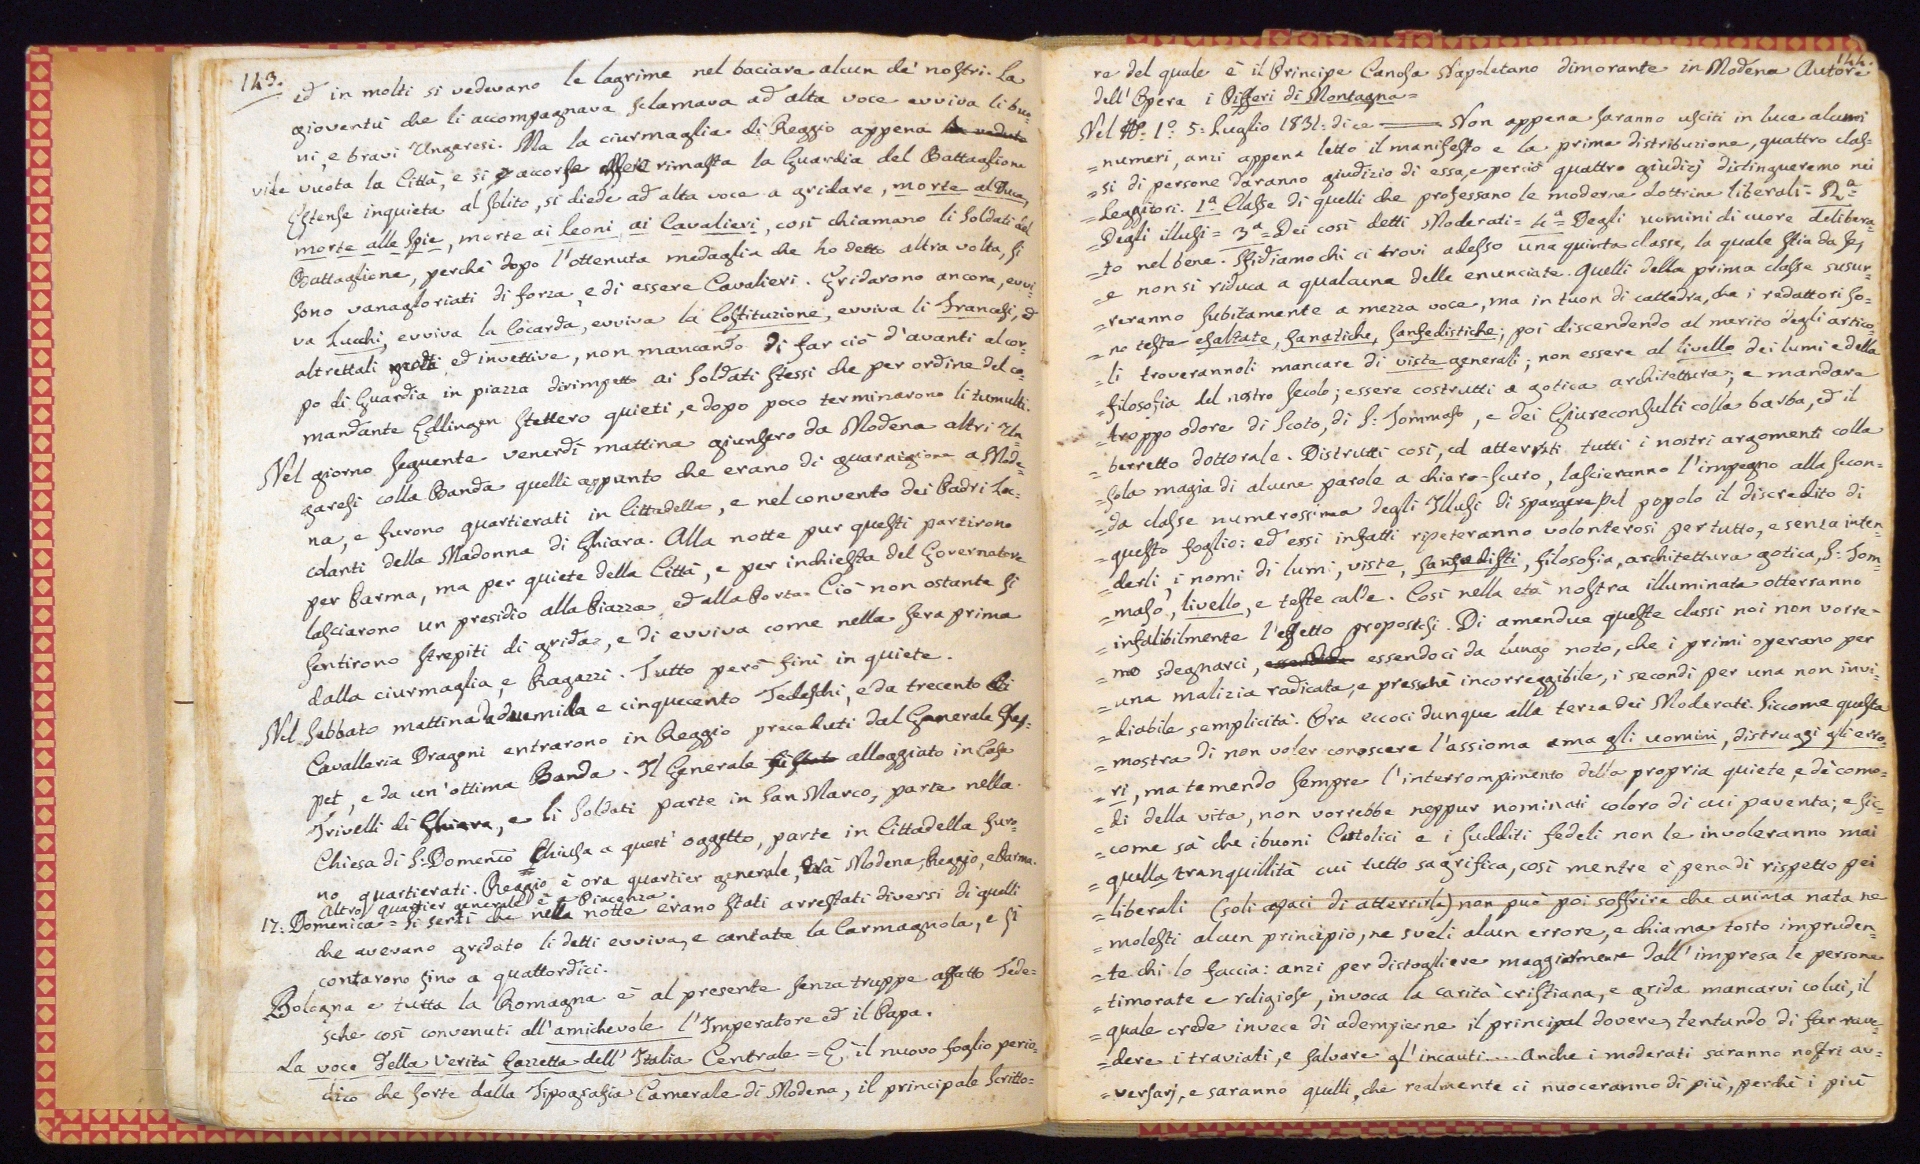 143.
ed in molti si vedevano le lagrime nel baciare alcun de' nostri. La
gioventù che li accompagnava sclamava ad alta voce evviva li buo=
ni, e bravi Ungaresi. Ma la ciurmaglia di Reggio appena
vide vuota la Città, e si accorse essere rimasta la Guardia del Battaglione
Estense inquieta al solito, si diede ad alta voce a gridare, morte al Duca,
morte alle spie, morte ai leoni, ai Cavalieri, così chiamano li soldati del
Battaglione, perchè dopo l'ottenuta medaglia che ho detto altra volta, si
sono vanagloriati di forza, e di essere Cavalieri. Gridarono ancora, evvi=
va Zucchi, evviva la Cocarda, evviva la Costituzione, evviva li Francesi, ed
altrettali motti, ed invettive, non mancando di far ciò d'avanti al cor=
po di Guardia in piazza dirimpetto ai soldati stessi che per ordine del co=
mandante Edlingen stettero quieti, e dopo poco terminarono li tumulti.
Nel giorno seguente venerdì mattina giunsero da Modena altri Un=
garesi colla Banda quelli appunto che erano di guarnigione a Mode=
na, e furono quartierati in Cittadella, e nel convento dei Padri Zoc=
colanti della Madonna di Ghiara. Alla notte pur questi partirono
per Parma, ma per quiete della Città, e per inchiesta del Governatore
lasciarono un presidio alla Piazza, ed alla Porta. Ciò non ostante si
sentirono strepiti di grida, e di evviva come nella sera prima
dalla ciurmaglia, e Ragazzi. Tutto però finì in quiete.
Nel Sabbato mattina duemila e cinquecento Tedeschi, e da trecento di
Cavalleria Dragoni entrarono in Reggio preceduti dal Generale
pet, e da un'ottima Banda. Il Generale alloggiato in Casa
Trivelli di Ghiara, e li soldati parte in San Marco, parte nella
Chiesa di S: Domenico chiusa a quest'oggetto, parte in Cittadella furo=
no quartierati. Reggio è ora quartier generale, tra Modena, Reggio, e Parma.
Altro quartier generale è a Piacenza
17: Domenica = Si sentì che nella notte erano stati arrestati diversi di quelli
che avevano gridato li detti evviva, e cantata la Carmagnola, e si
contarono fino a quattordici.
Bologna e tutta la Romagna è al presente senza truppe affatto Tede=
sche così convenuti all'amichevole l'Imperatore ed il Papa.
La voce della Verità Gazzetta dell'Italia Centrale = È il nuovo foglio perio=
dico che sorte dalla Tipografia Camerale di Modena, il principale scritto=
144.
re del quale è il Principe Canosa Napoletano dimorante in Modena Autore
dell'Opera i Pifferi di Montagna=
Nel N.º 1º 5: Luglio 1831: dice = Non appena saranno usciti in luce alcuni
= numeri, anzi appena letto il manifesto e la prima distribuzione, quattro clas=
= si di persone daranno giudizio di essa, e perciò quattro giudizj distingueremo nei
= Leggitori. 1ª Classe di quelli che professano le moderne dottrine liberali = 2ª
= Degli illusi = 3ª = Dei così detti Moderati = 4ª = Degli uomini di cuore delibera=
= to nel bene. Sfidiamo chi ci trovi adesso una quinta classe, la quale stia da se,
= e non si riduca a qualcuna delle enunciate. Quelli della prima classe susur=
= reranno subitamente a mezza voce, ma in tuon di cattedra, che i redattori so=
= no teste esaltate, fanatiche, sanfedistiche; poi discendendo al merito degli artico=
= li troverannoli mancare di viste generali; non essere al livello dei lumi e della
= filosofia del nostro secolo; essere costrutti a gotica architettura; e mandare
= troppo odore di Scoto, di S: Tommaso, e dei Giureconsulti colla barba, ed il
= berretto dottorale. Distrutti così, ed atterriti tutti i nostri argomenti colla
= sola magia di alcune parole a chiaro-scuro, lascieranno l'impegno alla secon=
= da classe numerosissima degli Illusi di spargere pel popolo il discredito di
= questo foglio: ed essi infatti ripeteranno volonterosi per tutto, e senza inten=
= derli, i nomi di lumi, viste, sanfedisti, filosofia, architettura gotica, S: Tom=
= maso, livello, e teste calde. Così nella età nostra illuminata otterranno
= infalibilmente l'effetto propostosi. Di amendue queste classi noi non vorre=
= mo sdegnarci, essendoci da lungo noto, che i primi operano per
= una malizia radicata, e pressochè incorreggibile, i secondi per una non invi=
= diabile semplicità. Ora eccoci dunque alla terza dei Moderati. Siccome questa
= mostra di non voler conoscere l'assioma ama gli uomini, distruggi gli erro=
= ri, ma temendo sempre l'interrompimento della propria quiete e de' como=
= di della vita, non vorrebbe neppur nominati coloro di cui paventa; e sic=
= come sà che i buoni Cattolici e i sudditi fedeli non le involeranno mai
= quella tranquillità cui tutto sagrifica, così mentre è pena di rispetto pei
= liberali (soli capaci di atterrirla) non può poi soffrire che anima nata ne
= molesti alcun principio, ne sveli alcun errore, e chiama tosto impruden=
= te chi lo faccia: anzi per distogliere maggiormente dall'impresa le persone
= timorate e religiose, invoca la carità cristiana, e grida mancarvi colui, il
= quale crede invece di adempierne il principal dovere, tentando di far rav=
= dere i traviati, e salvare gl'incauti..... Anche i moderati saranno nostri av=
= versarj, e saranno quelli, che realmente ci nuoceranno di più, perchè i più